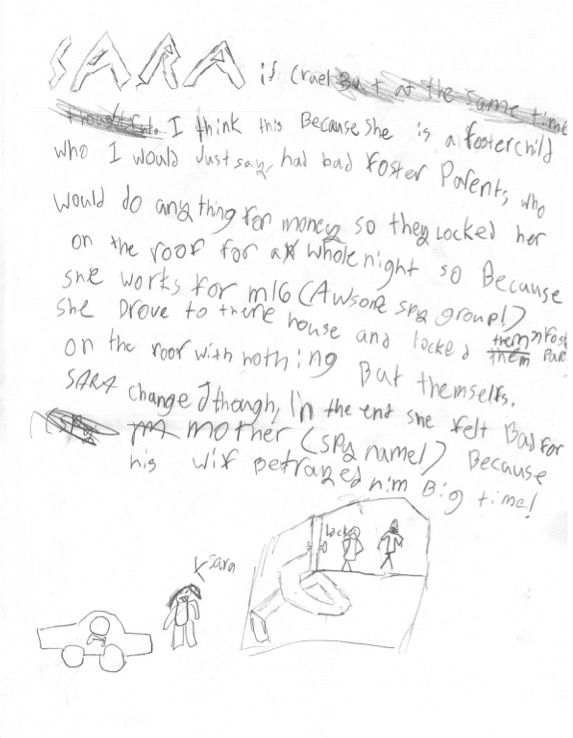 SARA is cruel But at the same time
thoughtful. I think this Because she is a fosterchild
who I would Just say, had bad foster Parents, who
would do anything for money so they Locked her
on the roof for a whole night so Because
she works for m16 (Awsome spy group!)
she Drove to there house and locked them
on the roof with nothing But themselfs.
SARA changed though, I'n the end she felt Bad for
mother (spy name!) Because
his wif Betrayed him Big time!
sara
Locked